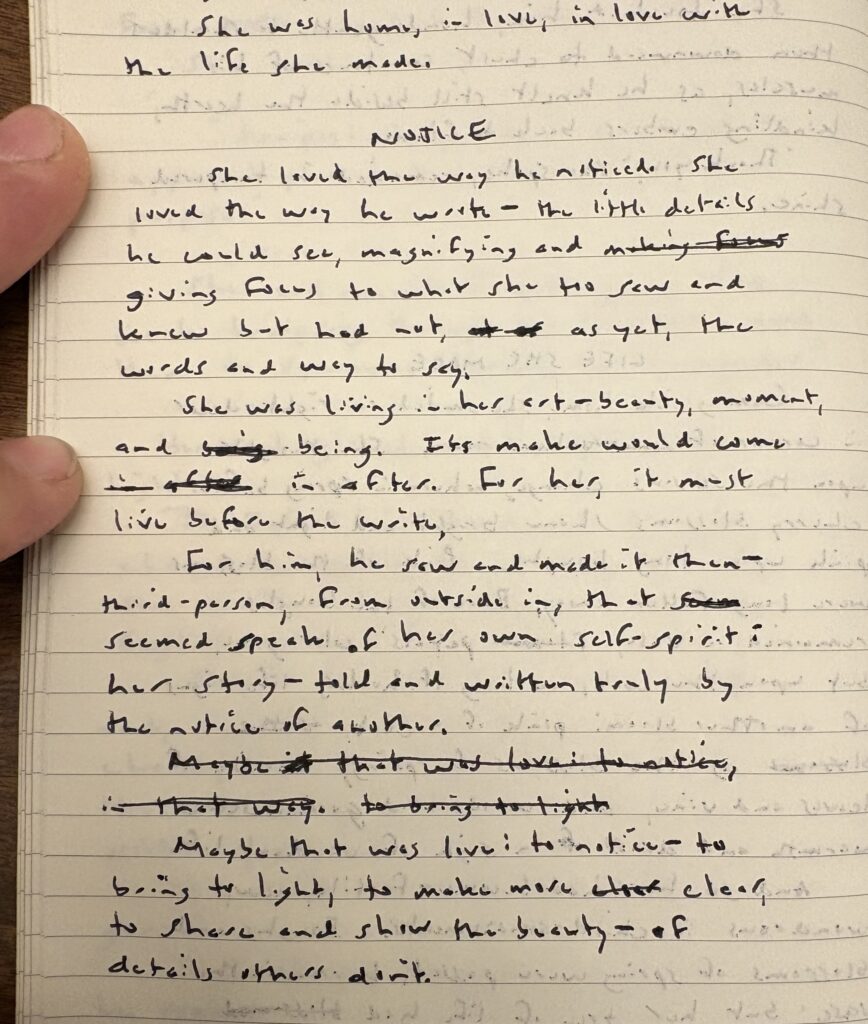 She was home, in love, in love with
the life she made.
NOTICE
She loved the way he noticed. She
loved the way he wrote – the little details
he could see, magnifying and making focus
giving focus to what she too saw and
knew but had not, as yet, the
words and way to say.
She was living in her art – beauty, moment,
and being being. Its make would come
in after in after. For her, it must
live before the write,
For him, he saw and made it then –
third-person, from outside in, that seem
seemed speak of her own self-spirit:
her story – told and written truly by
the notice of another.
Maybe it that was love: to notice,
in that way. to bring to light
Maybe that was live: to notice – to
bring to light, to make more clear clear,
to share and show the beauty – of
details others don't.